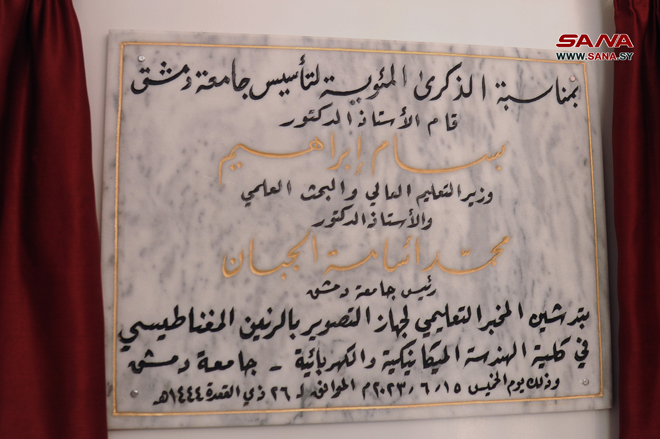 SANA
WWW.SANA.SY
بمناسبة الذكرى المئوية لتأسيس جامعة دمشق
قام الأستاذ الدكتور
بسام إبراهيم
وزير التعليم العالي والبحث العلمي
والأستاذ الدكتور
محمد أسامة الجبان
رئيس جامعة دمشق
بتدشين المخبر التعليمي لجهاز التصوير بالرنين المغناطيسي
في كلية الهندسة الميكانيكية والكهربائية - جامعة دمشق
وذلك يوم الخميس ٢٠٢٣/٦/١٥م الموافق لـ ٢٦ ذي القعدة ١٤٤٤هـ